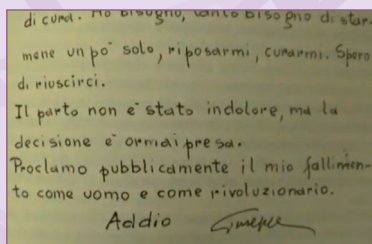 di cura. Ho bisogno, tanto bisogno di star-
mene un po' solo, riposarmi, curarmi. Spero
di riuscirci.
Il parto non è stato indolore, ma la
decisione è ormai presa.
Proclamo pubblicamente il mio fallimen-
to come uomo e come rivoluzionario.
Addio Giuseppe